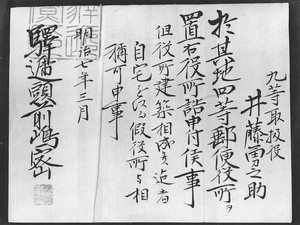 九等取扱役
井藤勇之助
於其地四等郵便役所ヲ
置右役所詰申付候事
但役所建築相成候迄者
自宅ヲ以仮役所与相
称可申事
明治七年三月
驛逓頭前嶋密